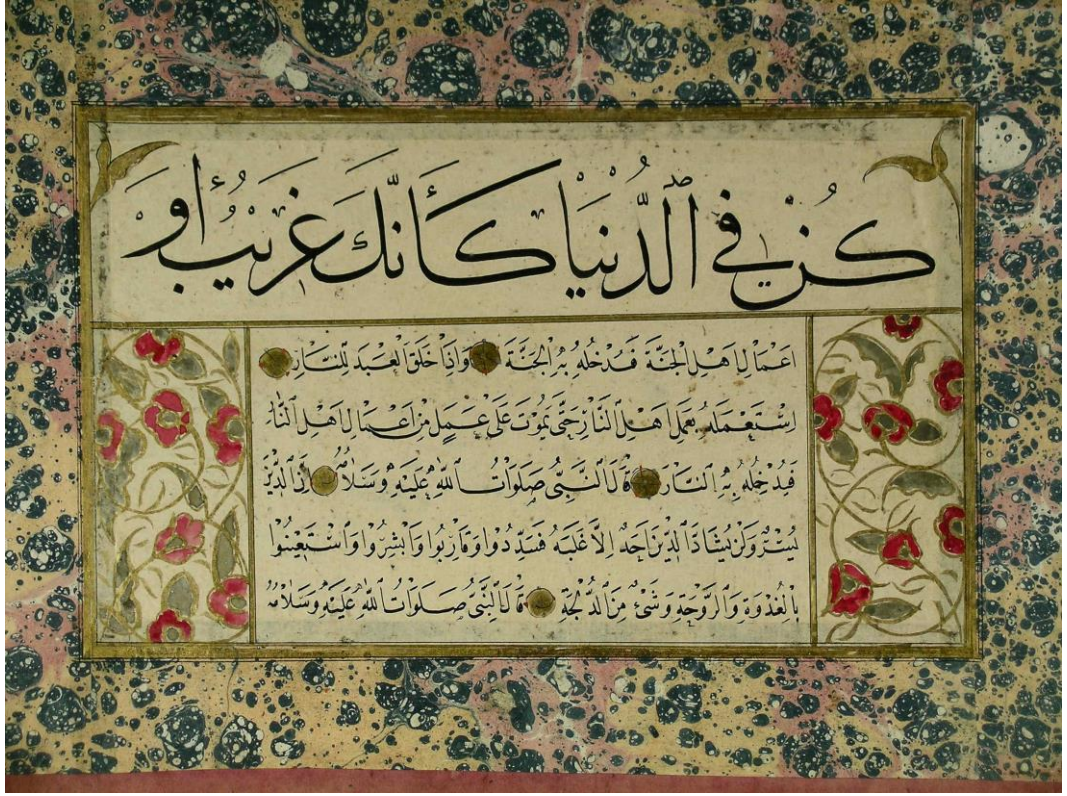 كُنْ فِي الدُّنْيَا كَأَنَّكَ غَرِيبٌ أَوْ
اَعْمَالِ اَهْلِ الْجَنَّةِ فَيُدْخِلُهُ بِهِ الْجَنَّةَ وَاِذَا خَلَقَ الْعَبْدَ لِلنَّارِ
اِسْتَعْمَلَهُ بِعَمَلِ اَهْلِ النَّارِ حَتَّى يَمُوتَ عَلَى عَمَلٍ مِنْ اَعْمَالِ اَهْلِ النَّارِ
فَيُدْخِلُهُ بِهِ النَّارَ قَالَ النَّبِيُّ صَلَوَاتُ اللّٰهِ عَلَيْهِ وَسَلَامُهُ اِنَّ الدِّينَ
يُسْرٌ وَلَنْ يُشَادَّ الدِّينَ اَحَدٌ اِلَّا غَلَبَهُ فَسَدِّدُوا وَقَارِبُوا وَاَبْشِرُوا وَاسْتَعِينُوا
بِالْغُدْوَةِ وَالرَّوْحَةِ وَشَيْءٍ مِنَ الدُّلْجَةِ قَالَ النَّبِيُّ صَلَوَاتُ اللّٰهِ عَلَيْهِ وَسَلَامُهُ